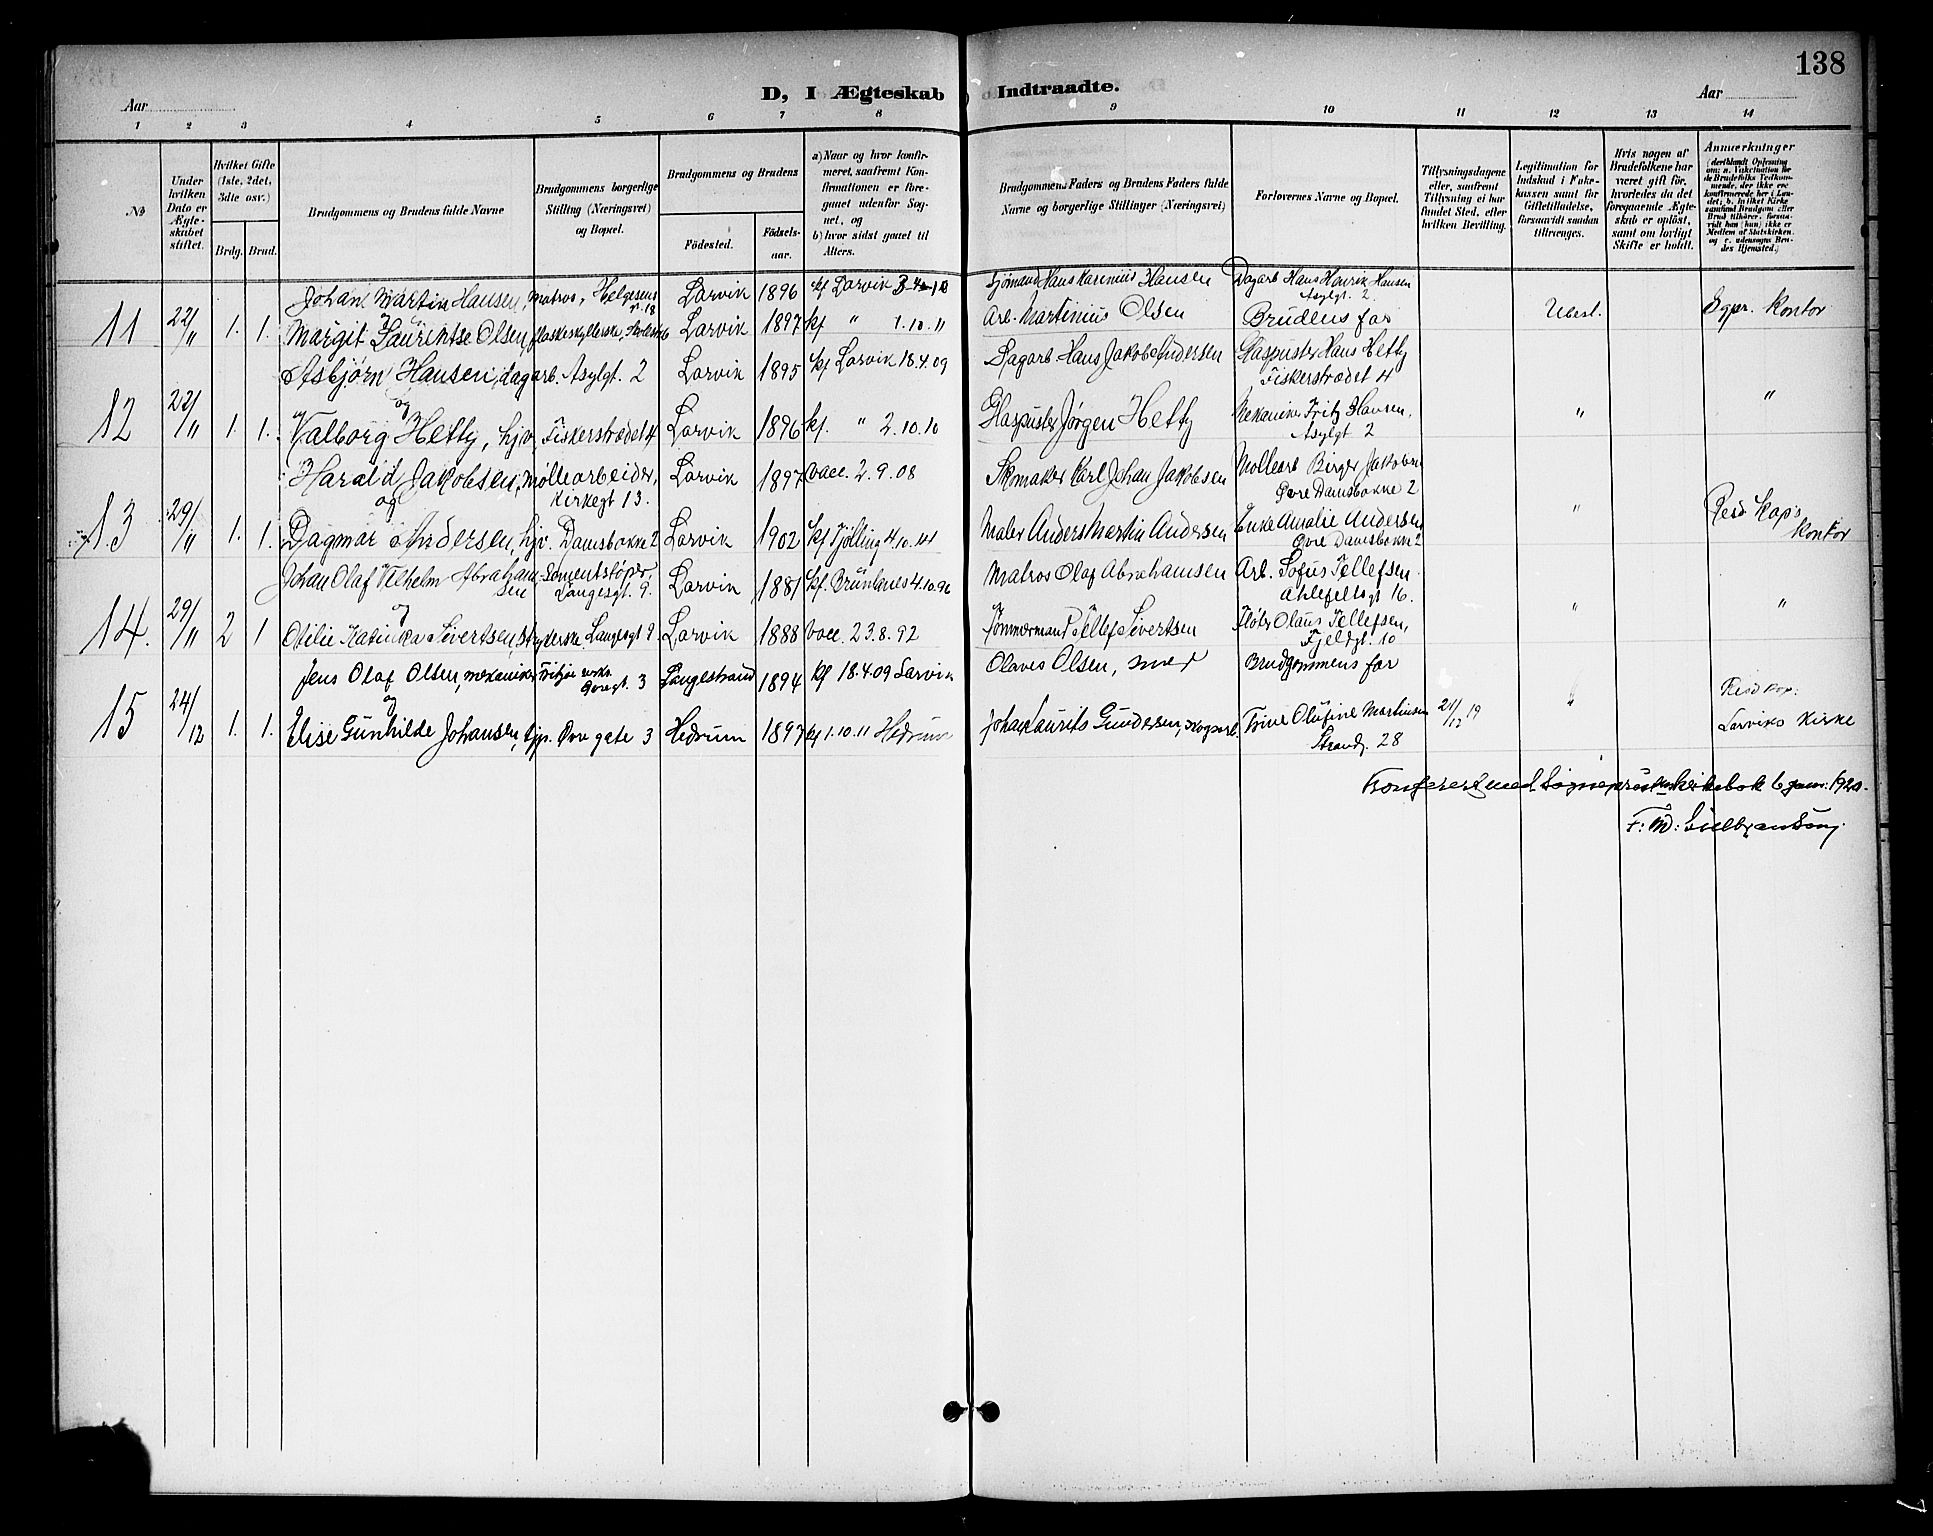 138
D, I Ægteskab Indtraadte.
Aar
Aar
1 2 3 4 5 6 7 8 9 10 11 12 13 14
No
Under hvilken Dato er Ægteskabet stiftet.
Hvilket Gifte (1ste, 2det, 3dte osv.)
Brdg. Brud.
Brudgommens og Brudens fulde Navne
Brudgommens borgerlige Stilling (Næringsvei) og Bopæl.
Brudgommens og Brudens
Födested. Födsels-aar.
a) Naar og hvor konfirmeret, saafremt Konfirmationen er foregaaet udenfor Sognet, og
b) hvor sidst gaaet til Alters.
Brudgommens Faders og Brudens Faders fulde Navne og borgerlige Stillinger (Næringsvei)
Forlovernes Navne og Bopæl.
Tillysningsdagene eller, saafremt Tillysning ei har fundet Sted, efter hvilken Bevilling.
Legitimation for Indskud i Enkekassen samt for Giftetilladelse, forsaavidt saadan tiltrænges.
Hvis nogen af Brudefolkene har været gift för, hvorledes da det foregaaende Ægteskab er oplöst, samt om lovligt Skifte er holdt.
Anmerkninger
Johan Martin Hansen, Matros, Helgesens gt. 18 Larvik 1896 kf Larvik 3-4-10 Sjömand Hans Karenius Hansen Dagarb Hans Henrik Hansen
Asylgt. 2
11 22/11 1. 1. Margit Laurentse Olsen, flaskeskyllerske, Larvik 1897 kf " 1.10.11 Arb. Martinius Olsen Brudens far Ubest. Sgpr. Kontor
Asbjørn Hansen, dagarb. Asylgt. 2 Larvik 1895 kf Larvik 18.4.09 Dagarb Hans Jakob Andersen Glaspuster Hans Hetty
og Fiskerstrædet 4
12 22/11 1. 1. Valborg Hetty, hjv, Fiskerstrædet 4 Larvik 1896 kf. " 2.10.10 Glaspuster Jørgen Hetty Mekaniker Fritz Hansen, " "
Asylgt 2
Harald Jakobsen, Møllearbeider, Larvik 1897 vacc. 2.9.08 Skomaker Karl Johan Jakobsen Møllearb Birger Jakobsen
og Kirkegt 13. Øvre Damsbakke 2
13 29/11 1. 1. Dagmar Andersen, hjv. Damsbakke 2 Larvik 1902 kf Tjølling 4.10.14 Maler Anders Martin Andersen Enke Amalie Andersen " Resid Kap's
Øvre Damsbakke 2 Kontor
Johan Olaf Vilhelm Abrahamsen Sementstøper Larvik 1881 kf Brunlanes 4.10.96 Matros Olaf Abrahamsen Arb. Sofus Tellefsen
og Langesgt. 9. Ahlefeltsgt 16.
14. 29/11 2 1 Otilie Katinka Sivertsen, Strykerske Langesgt 9 Larvik 1888 vacc. 23.8.92 Tømmermand Tellef Sivertsen Fløter Olaus Tellefsen, " "
Fjeldgt. 10
Jens Olaf Olsen, mekaniker Fritzøe verks. Øvregt. 3 Langestrand 1894 kf 18.4.09 Larvik Olaves Olsen, smed Brudgommens far
og
15 24/12 1. 1. Elise Gunhilde Johansen, tjp. Øvre gate 3 Hedrum 1897 kf 1.10.11 Hedrum Johan Laurits Gundersen, skogsarb. Trine Olufine Martinsen 21/12 19 " Resd kap:
Strandg. 28 Larviks Kirke
Konfereret med Sogneprestens kirkebok 6 jan: 1920.
F: M: Gulbransen.